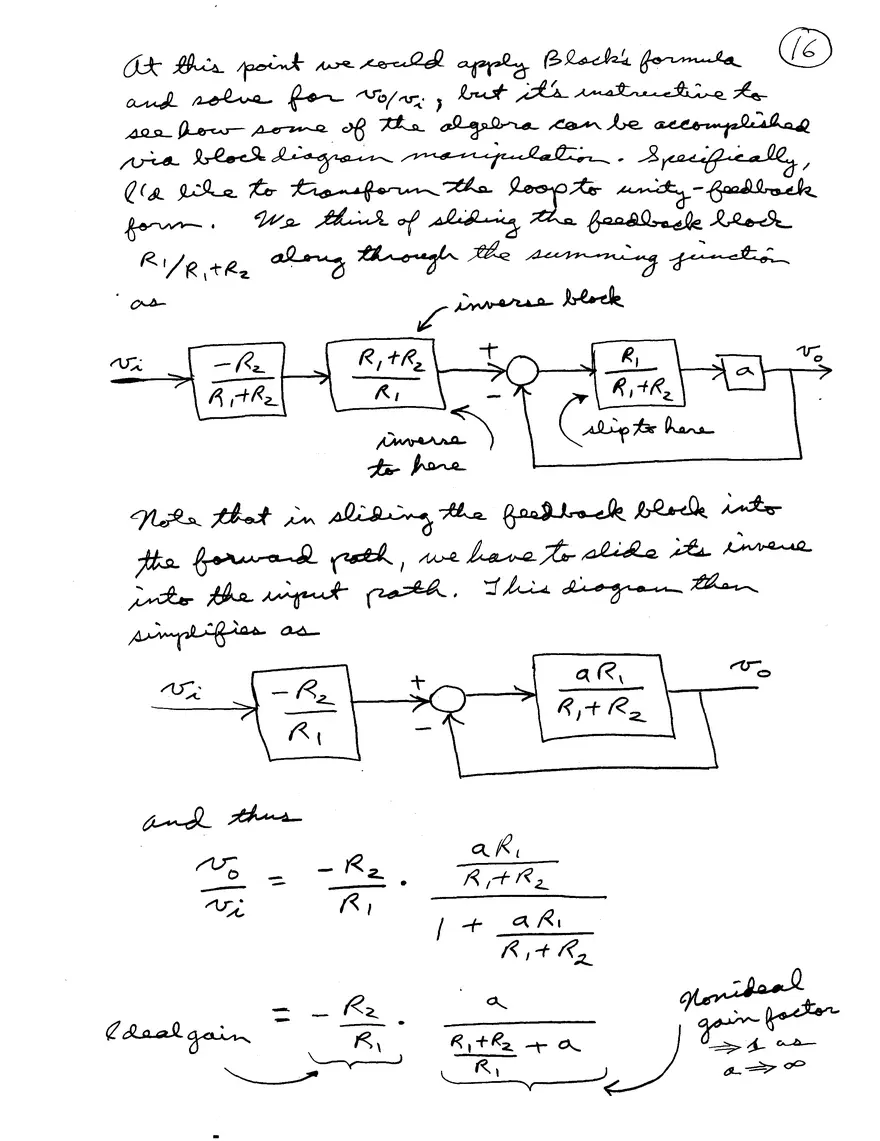 16
At this point we could apply Black's formula
and solve for vo/vi, but it's instructive to
see how some of the algebra can be accomplished
via block diagram manipulation. Specifically,
I'd like to transform the loop to unity-feedback
form. We think of sliding the feedback block
R1/R1+R2 along through the summing junction
as
inverse block
vi -R2/R1+R2 R1+R2/R1 + - R1/R1+R2 a vo
inverse to here
slip to here
Note that in sliding the feedback block into
the forward path, we have to slide its inverse
into the input path. This diagram then
simplifies as
vi -R2/R1 + - aR1/R1+R2 vo
and thus
vo/vi = -R2/R1 · (aR1/R1+R2)/(1 + aR1/R1+R2)
Ideal gain = -R2/R1 · a/(R1+R2/R1 + a)
Nonideal
gain factor
⇒ 1 as
a ⇒ ∞